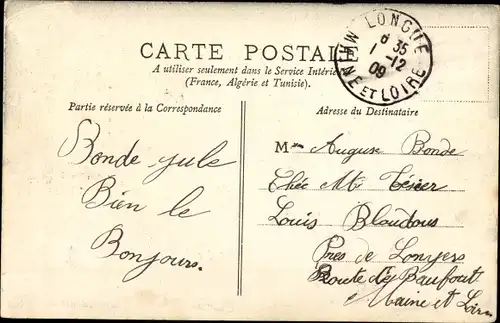 CARTE POSTALE
A utiliser seulement dans le Service Intérie
(France, Algérie et Tunisie).
LONGUÉ
6 35
1 -12
09
MNE ET LOIRE
Partie réservée à la Correspondance
Bonde jule
Bien le
Bonjours.
Adresse du Destinataire
Mme Auguse Bonde
Chée Mr
Louis
Pres de
Route de Baufout
Maine et Loire